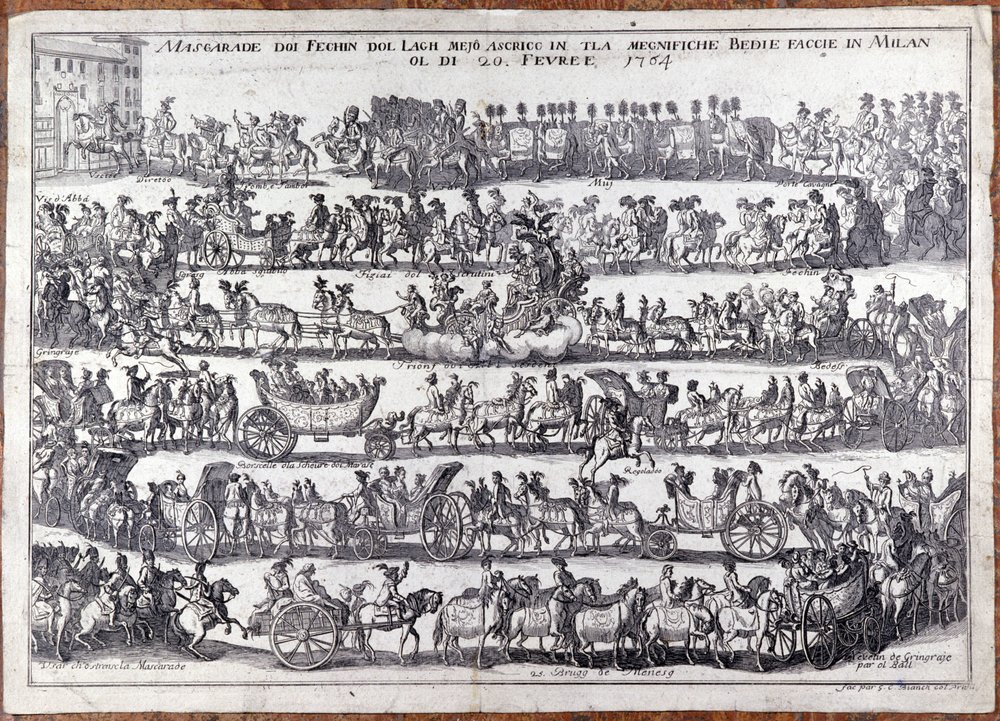 MASCARADE DOI FECHIN DOL LAGH MEJÔ ASCRICC IN TLA MEGNIFICHE BEDIE FACCIE IN MILAN
OL DI 20. FEVREE 1764
Diretoo
Muj
Porte Cavagne
Vis d'Abbá
Abba
Figiai dol Scrutini
Fechin
Gringraje
Trionf
Bedess
Borscelle ola Scheure doi Marasc
Regoladoo
Usar ch'ostrensc la Mascarade
25. Brugg de Menesg
Revelin de Gringraje
par ol Ball
fac par G. C. Bianch